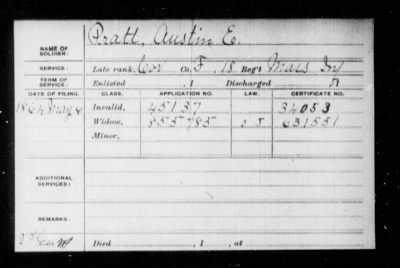 NAME OF SOLDIER: Pratt, Austin E.
SERVICE: Late rank, Cor Co. F, 18 Reg't Mass Inf
TERM OF SERVICE: Enlisted , 1 Discharged
DATE OF FILING. CLASS. APPLICATION NO. LAW. CERTIFICATE NO.
Invalid, 45137 34053
Widow, 855785 631551
Minor,
ADDITIONAL SERVICES:
REMARKS:
Died , 1 , at